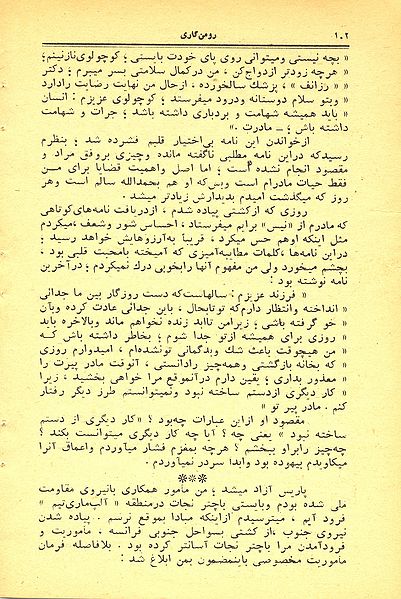 ۱۰۲ رومن‌گاری
« بچه نیستی ومیتوانی روی پای خودت بایستی ؛ کوچولوی‌نازنینم؛
« هرچه زودتر ازدواج‌کن ، من درکمال سلامتی بسر میبرم ؛ دکتر
« « رزانف » ، پزشك سالخورده ، ازحال من نهایت رضایت رادارد
« وبتو سلام دوستانه ودرود میفرستد ؛ کوچولوی عزیزم : انسان
« باید همیشه شهامت و بردباری داشته باشد ؛ جرات و شهامت
داشته باش ؛ــ مادرت .»
ازخواندن این نامه بی‌اختیار قلبم فشرده شد ؛ بنظرم
رسیدکه دراین نامه مطلبی ناگفته مانده وچیزی بروفق مراد و
مقصود انجام نشده است ؛ اما اصل واهمیت قضایا برای مــن
فقط حیات مادرام است وبس‌که او هم بحمدالله سالم است وهر
روز که میگذشت امیدم بدیدارش زیادتر میشد .
روزی که ازکشتی پیاده شدم ، ازدریافت نامه‌های‌کوتاهی
که مادرم از «نیس» برایم میفرستاد ، احساس شور وشعف ،میکردم
مثل اینکه اوهم حس میکرد ، قریباً به‌آرزوهایش خواهد رسید ؛
دراین نامه‌ها ،کلمات مطایبه‌آمیزی که آمیخته بامحبت قلبی بود ،
بچشم میخورد ولی من مفهوم آنها رابخوبی درك نمیکردم ؛ درآخرین
نامه نوشته بود :
« فرزند عزیزم : سالهاست‌که دست روزگار بین ما جدائی
« انداخته وانتظار دارم‌که توتابحال ، باین جدائی عادت کرده وبآن
« خو گرفته باشی ؛ زیرامن تاابد زنده نخواهم ماند وبالاخره باید
« روزی برای همیشه ازتو جدا شوم ؛ بخاطر داشته باش کــه
« من هیچوقت باعث شك وبدگمانی تونشده‌ام ، امیدوارم روزی
« که بخانه بازگشتی وهمه‌چیز رادانستی ، آنوقت مادر پیرت را
« معذور بداری ؛ یقین دارم درآنموقع مرا خواهی بخشید ، زیرا
« کار دیگری ازدستم ساخته نبود ونمیتوانستم طرز دیگر رفتار
کنم . مادر پیر تو »
مقصود او ازاین عبارات چه‌بود ؟ «کار دیگری از دستم
ساخته نبود » یعنی چه ؟ آیا چه کار دیگری میتوانست بکند ؟
چه‌چیز رابراو ببخشم ؟ هرچه بمغزم فشار میآوردم واعماق آنرا
میکاویدم بیهوده بود وابداً سردر نمیآوردم .
***
پاریس آزاد میشد ؛ من مأمور همکاری بانیروی مقاومت
ملی شده بودم وبایستی باچتر نجات درمنطقه « آلپ‌ماری‌تیم »
فرود آیم ، میترسیدم ازاینکه مبادا بموقع نرسم . پیاده شدن
نیروی جنوب ،از کشتی بسواحل جنوبی فرانسه ، مأموریت و
فرودآمدن مرا باچتر نجات آسانتر کرده بود . بلافاصله فرمان
مأموریت مخصوصی باینمضمون بمن ابلاغ شد :